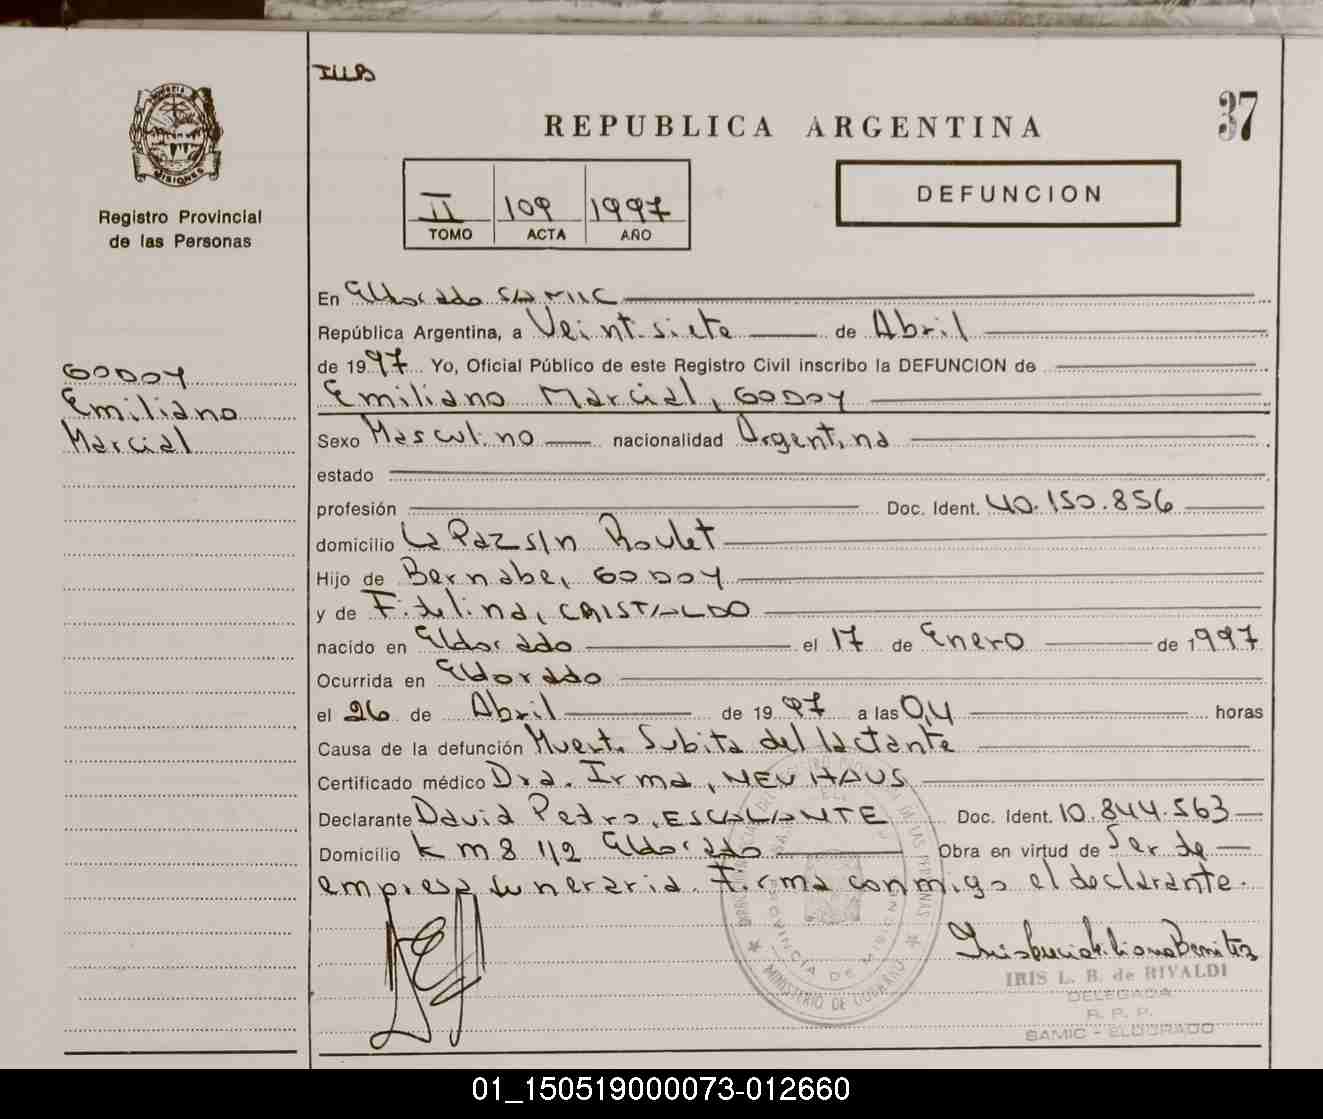 ILLB
37
REPUBLICA ARGENTINA
MISIONES
Registro Provincial
de las Personas
II 109 1997
TOMO ACTA AÑO
DEFUNCION
En Eldorado SAMIC
República Argentina, a Veintisiete de Abril
de 1997 Yo, Oficial Público de este Registro Civil inscribo la DEFUNCION de
GODOY
Emiliano
Marcial
Emiliano Marcial, GODOY
Sexo Masculino nacionalidad Argentina
estado
profesión Doc. Ident. 40.150.856
domicilio La Paz s/n Roulet
Hijo de Bernabe, GODOY
y de Fidelina, CRISTALDO
nacido en Eldorado el 17 de Enero de 1997
Ocurrida en Eldorado
el 26 de Abril de 1997 a las 04 horas
Causa de la defunción Muerte Subita del lactante
Certificado médico Dra. Irma, NEUHAUS
Declarante David Pedro, ESCALANTE Doc. Ident. 10.844.563
Domicilio Km 8 1/2 Eldorado Obra en virtud de Ser de
empresa funeraria. Firma conmigo el declarante.
PROVINCIA DE MISIONES
MINISTERIO DE GOBIERNO
IRIS L. B. de RIVALDI
DELEGADA
R. P. P.
SAMIC - ELDORADO
01_150519000073-012660